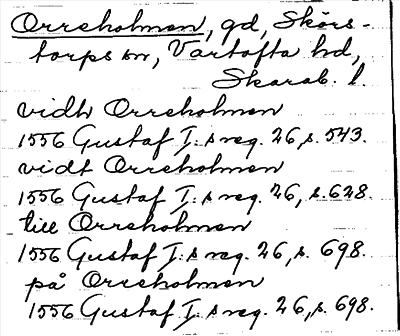 Orreholmen, gd, Skörs-
torps sn, Vartofta hd,
Skarab. l.
vidh Orreholmen
1556 Gustaf I:s reg. 26, s. 543.
vidt Orreholmen
1556 Gustaf I:s reg. 26, s. 628.
till Orreholmen
1556 Gustaf I:s reg. 26, s. 698.
på Orreholmen
1556 Gustaf I:s reg. 26, s. 698.